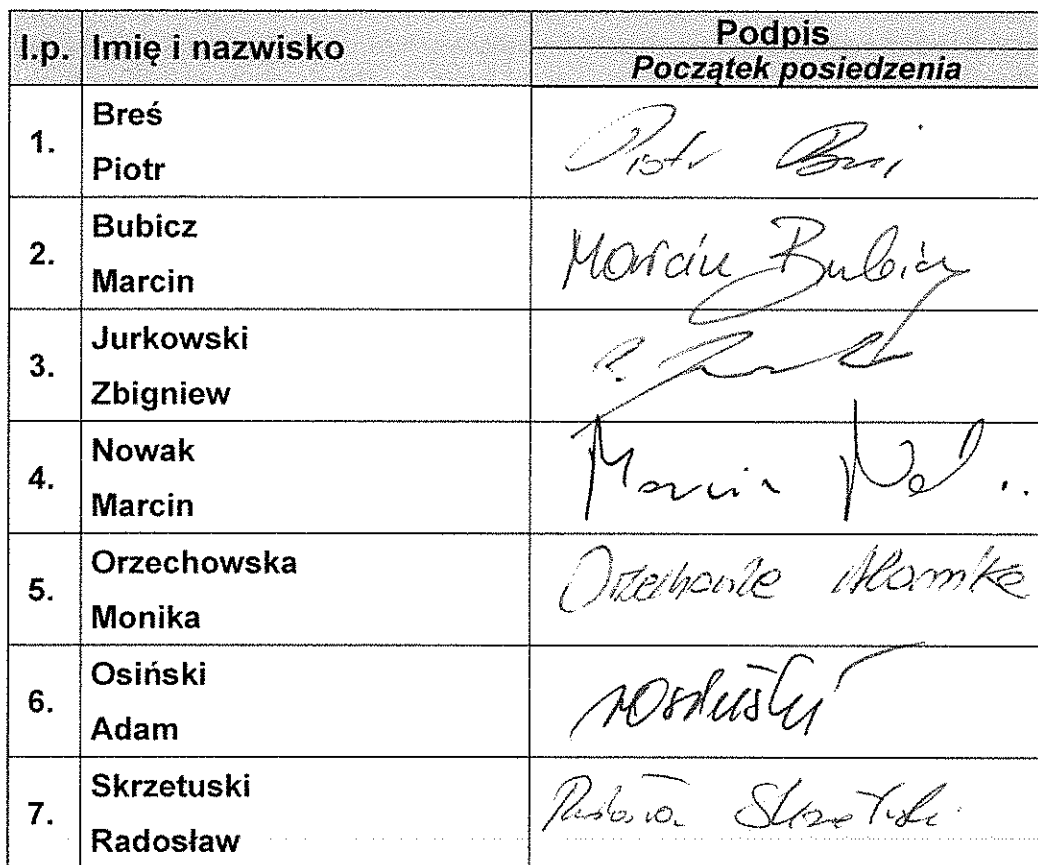 l.p. Imię i nazwisko Podpis
Początek posiedzenia
1. Breś
Piotr
Piotr Breś
2. Bubicz
Marcin
Marcin Bubicz
3. Jurkowski
Zbigniew
4. Nowak
Marcin
Marcin
5. Orzechowska
Monika
Orzechowska Monika
6. Osiński
Adam
7. Skrzetuski
Radosław
Skrzetuski